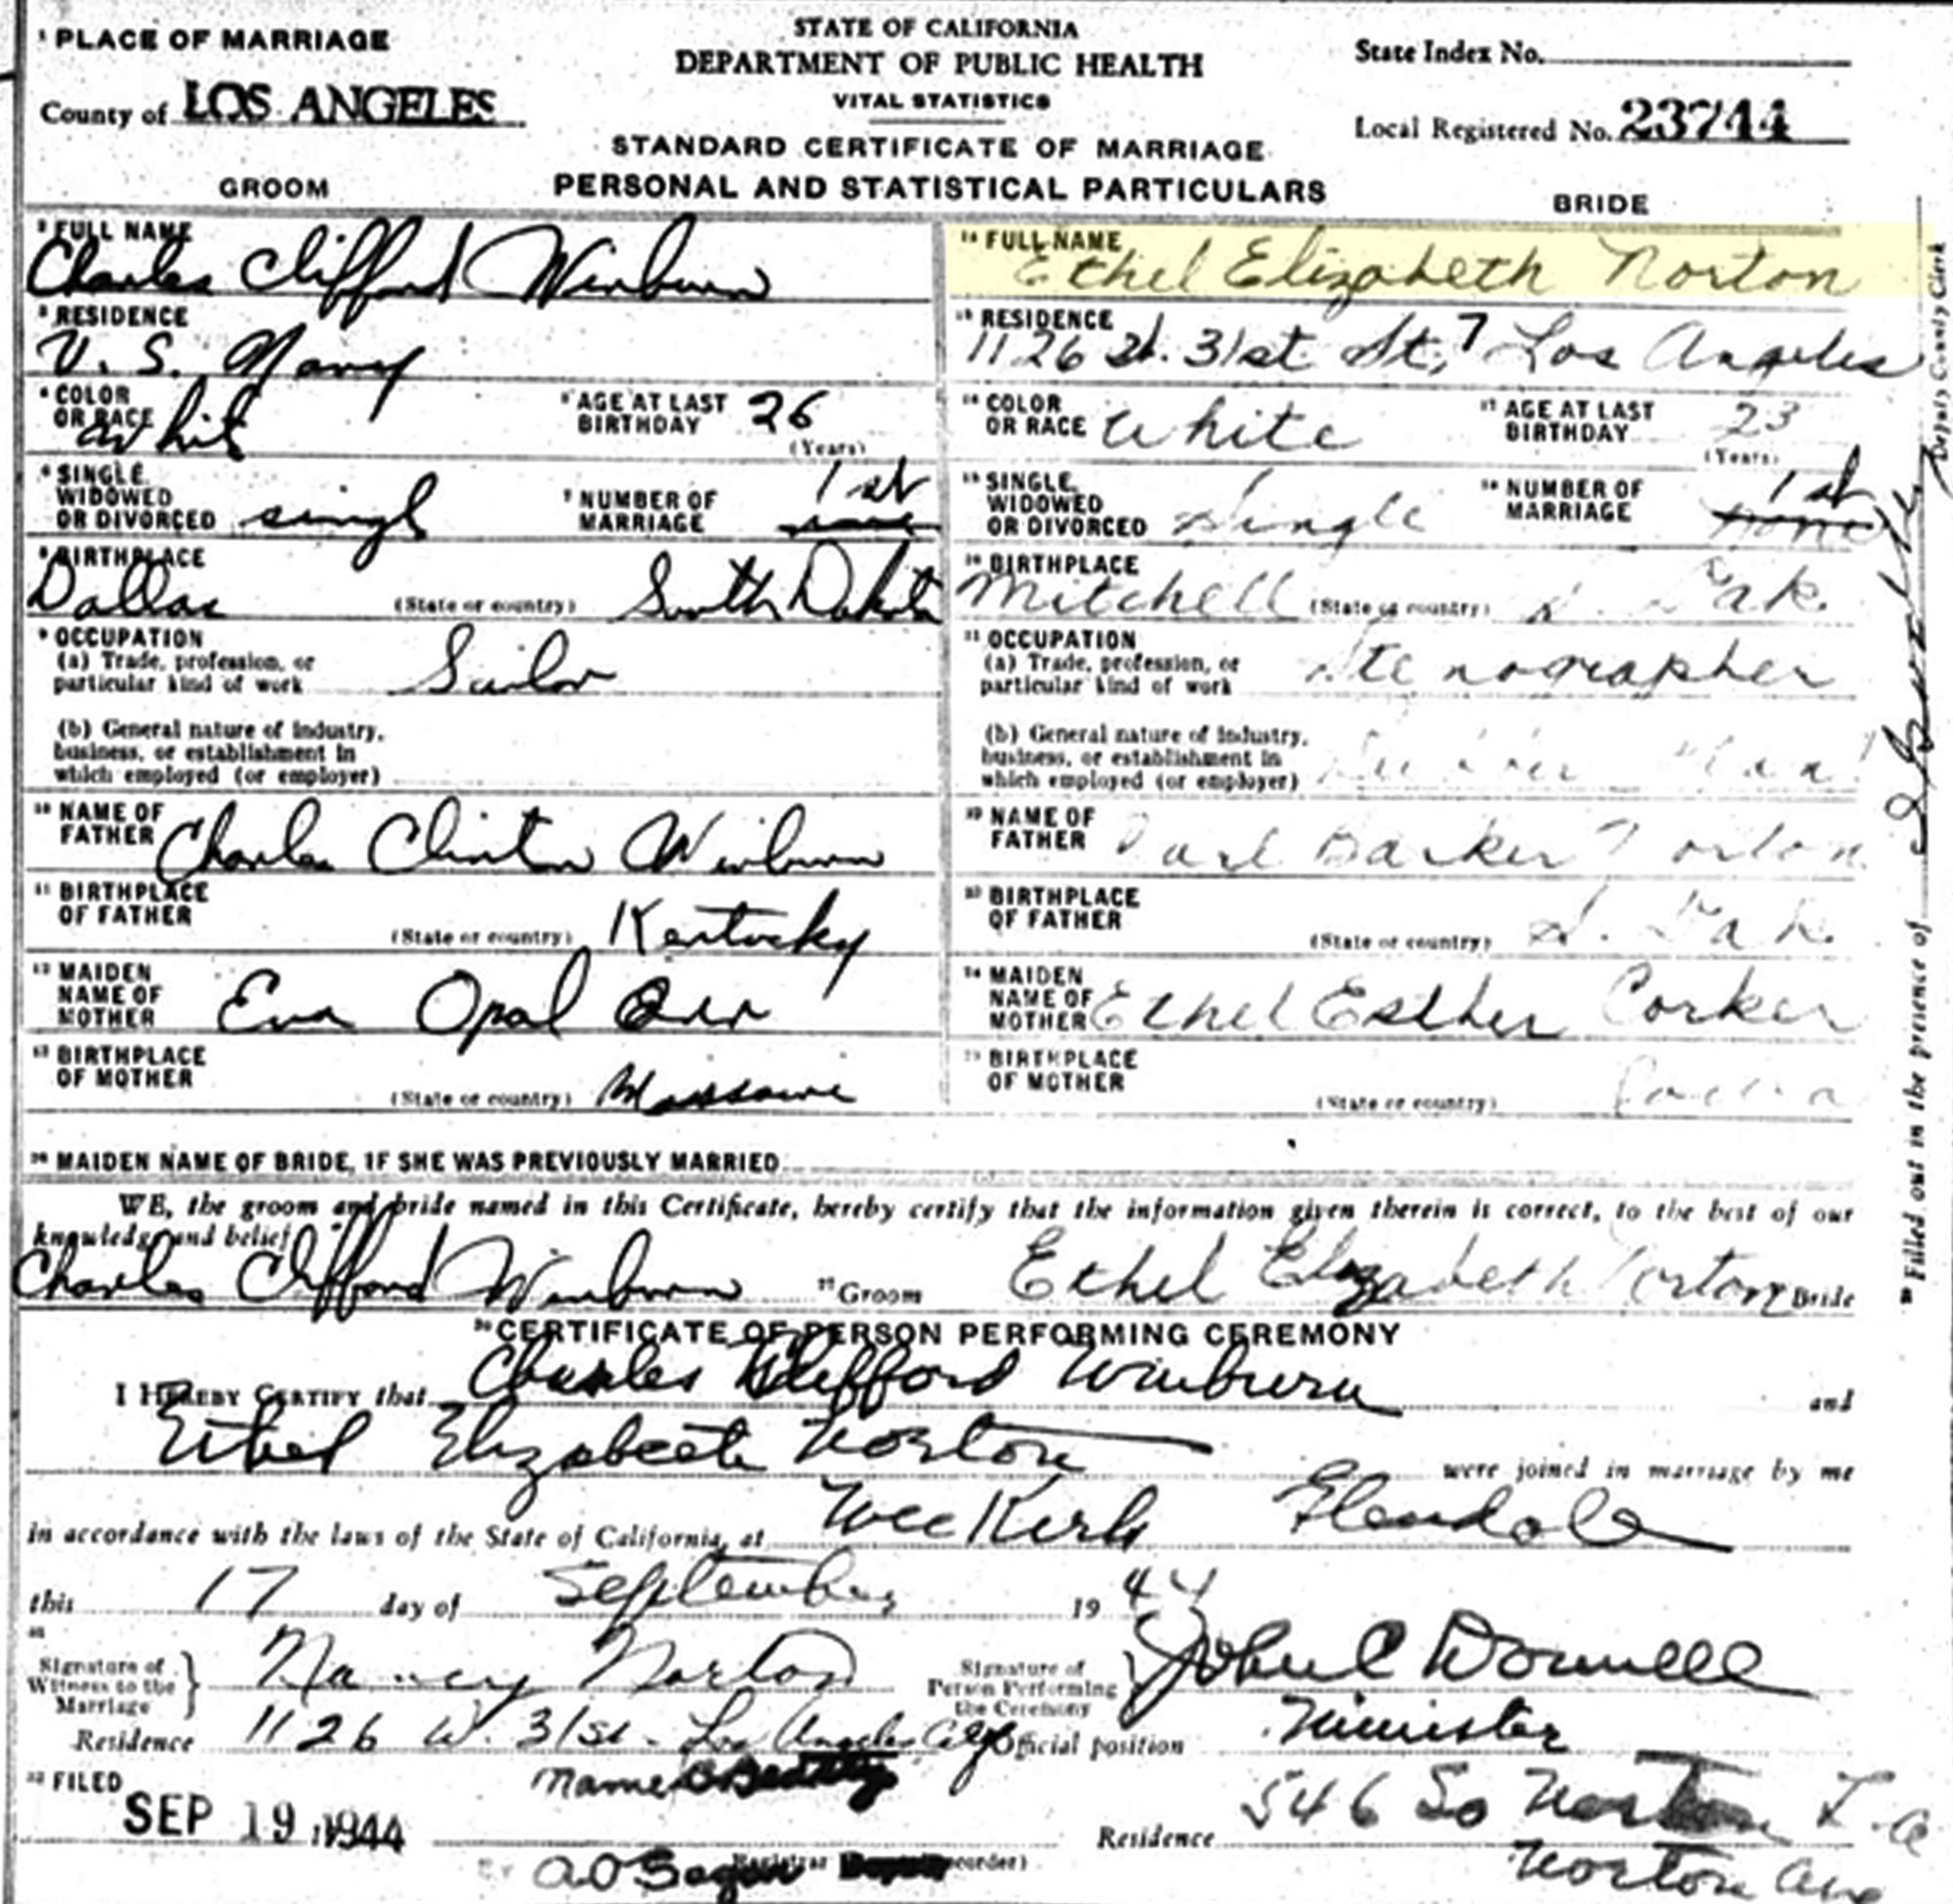 ¹ PLACE OF MARRIAGE
County of LOS ANGELES
STATE OF CALIFORNIA
DEPARTMENT OF PUBLIC HEALTH
VITAL STATISTICS
STANDARD CERTIFICATE OF MARRIAGE
State Index No.
Local Registered No. 23744
GROOM
PERSONAL AND STATISTICAL PARTICULARS
BRIDE
² FULL NAME Charles Clifford Winburn
³ RESIDENCE
U. S. Navy
⁴ COLOR OR RACE Whit
⁵ AGE AT LAST BIRTHDAY 26 (Years)
⁶ SINGLE WIDOWED OR DIVORCED singl
⁷ NUMBER OF MARRIAGE 1st
⁸ BIRTHPLACE
Dallas (State or country) South Dakota
⁹ OCCUPATION
(a) Trade, profession, or particular kind of work Sailor
(b) General nature of industry, business, or establishment in which employed (or employer)
¹⁰ NAME OF FATHER Charles Clinton Winburn
¹¹ BIRTHPLACE OF FATHER (State or country) Kentucky
¹² MAIDEN NAME OF MOTHER Eva Opal Orr
¹³ BIRTHPLACE OF MOTHER (State or country)
¹⁴ FULL NAME Ethel Elizabeth Norton
¹⁵ RESIDENCE
1126 31st St, 7 Los Angeles
¹⁶ COLOR OR RACE White
¹⁷ AGE AT LAST BIRTHDAY 23 (Years)
¹⁸ SINGLE WIDOWED OR DIVORCED Single
¹⁹ NUMBER OF MARRIAGE 1st none
²⁰ BIRTHPLACE
Mitchell (State or country) S. Dak.
²¹ OCCUPATION
(a) Trade, profession, or particular kind of work Stenographer
(b) General nature of industry, business, or establishment in which employed (or employer)
²² NAME OF FATHER Barker Norton
²³ BIRTHPLACE OF FATHER (State or country) S. Dak.
²⁴ MAIDEN NAME OF MOTHER Ethel Esther Corker
²⁵ BIRTHPLACE OF MOTHER (State or country)
²⁶ MAIDEN NAME OF BRIDE, IF SHE WAS PREVIOUSLY MARRIED
WE, the groom and bride named in this Certificate, hereby certify that the information given therein is correct, to the best of our
knowledge and belief
Charles Clifford Winburn Groom Ethel Elizabeth Norton Bride
CERTIFICATE OF PERSON PERFORMING CEREMONY
I HEREBY CERTIFY that Charles Clifford Winburn and
Ethel Elizabeth Norton were joined in marriage by me
in accordance with the laws of the State of California, at Wee Kirk Glendale
this 17 day of September 1944
Signature of Witness to the Marriage Nancy Norton
Residence 1126 W. 31st. Los Angeles
Signature of Person Performing the Ceremony John C Donnell
Official position Minister
FILED
SEP 19 1944
Name
Residence 546 So Norton L.A
Norton Ave
Filled out in the presence of
Deputy County Clerk